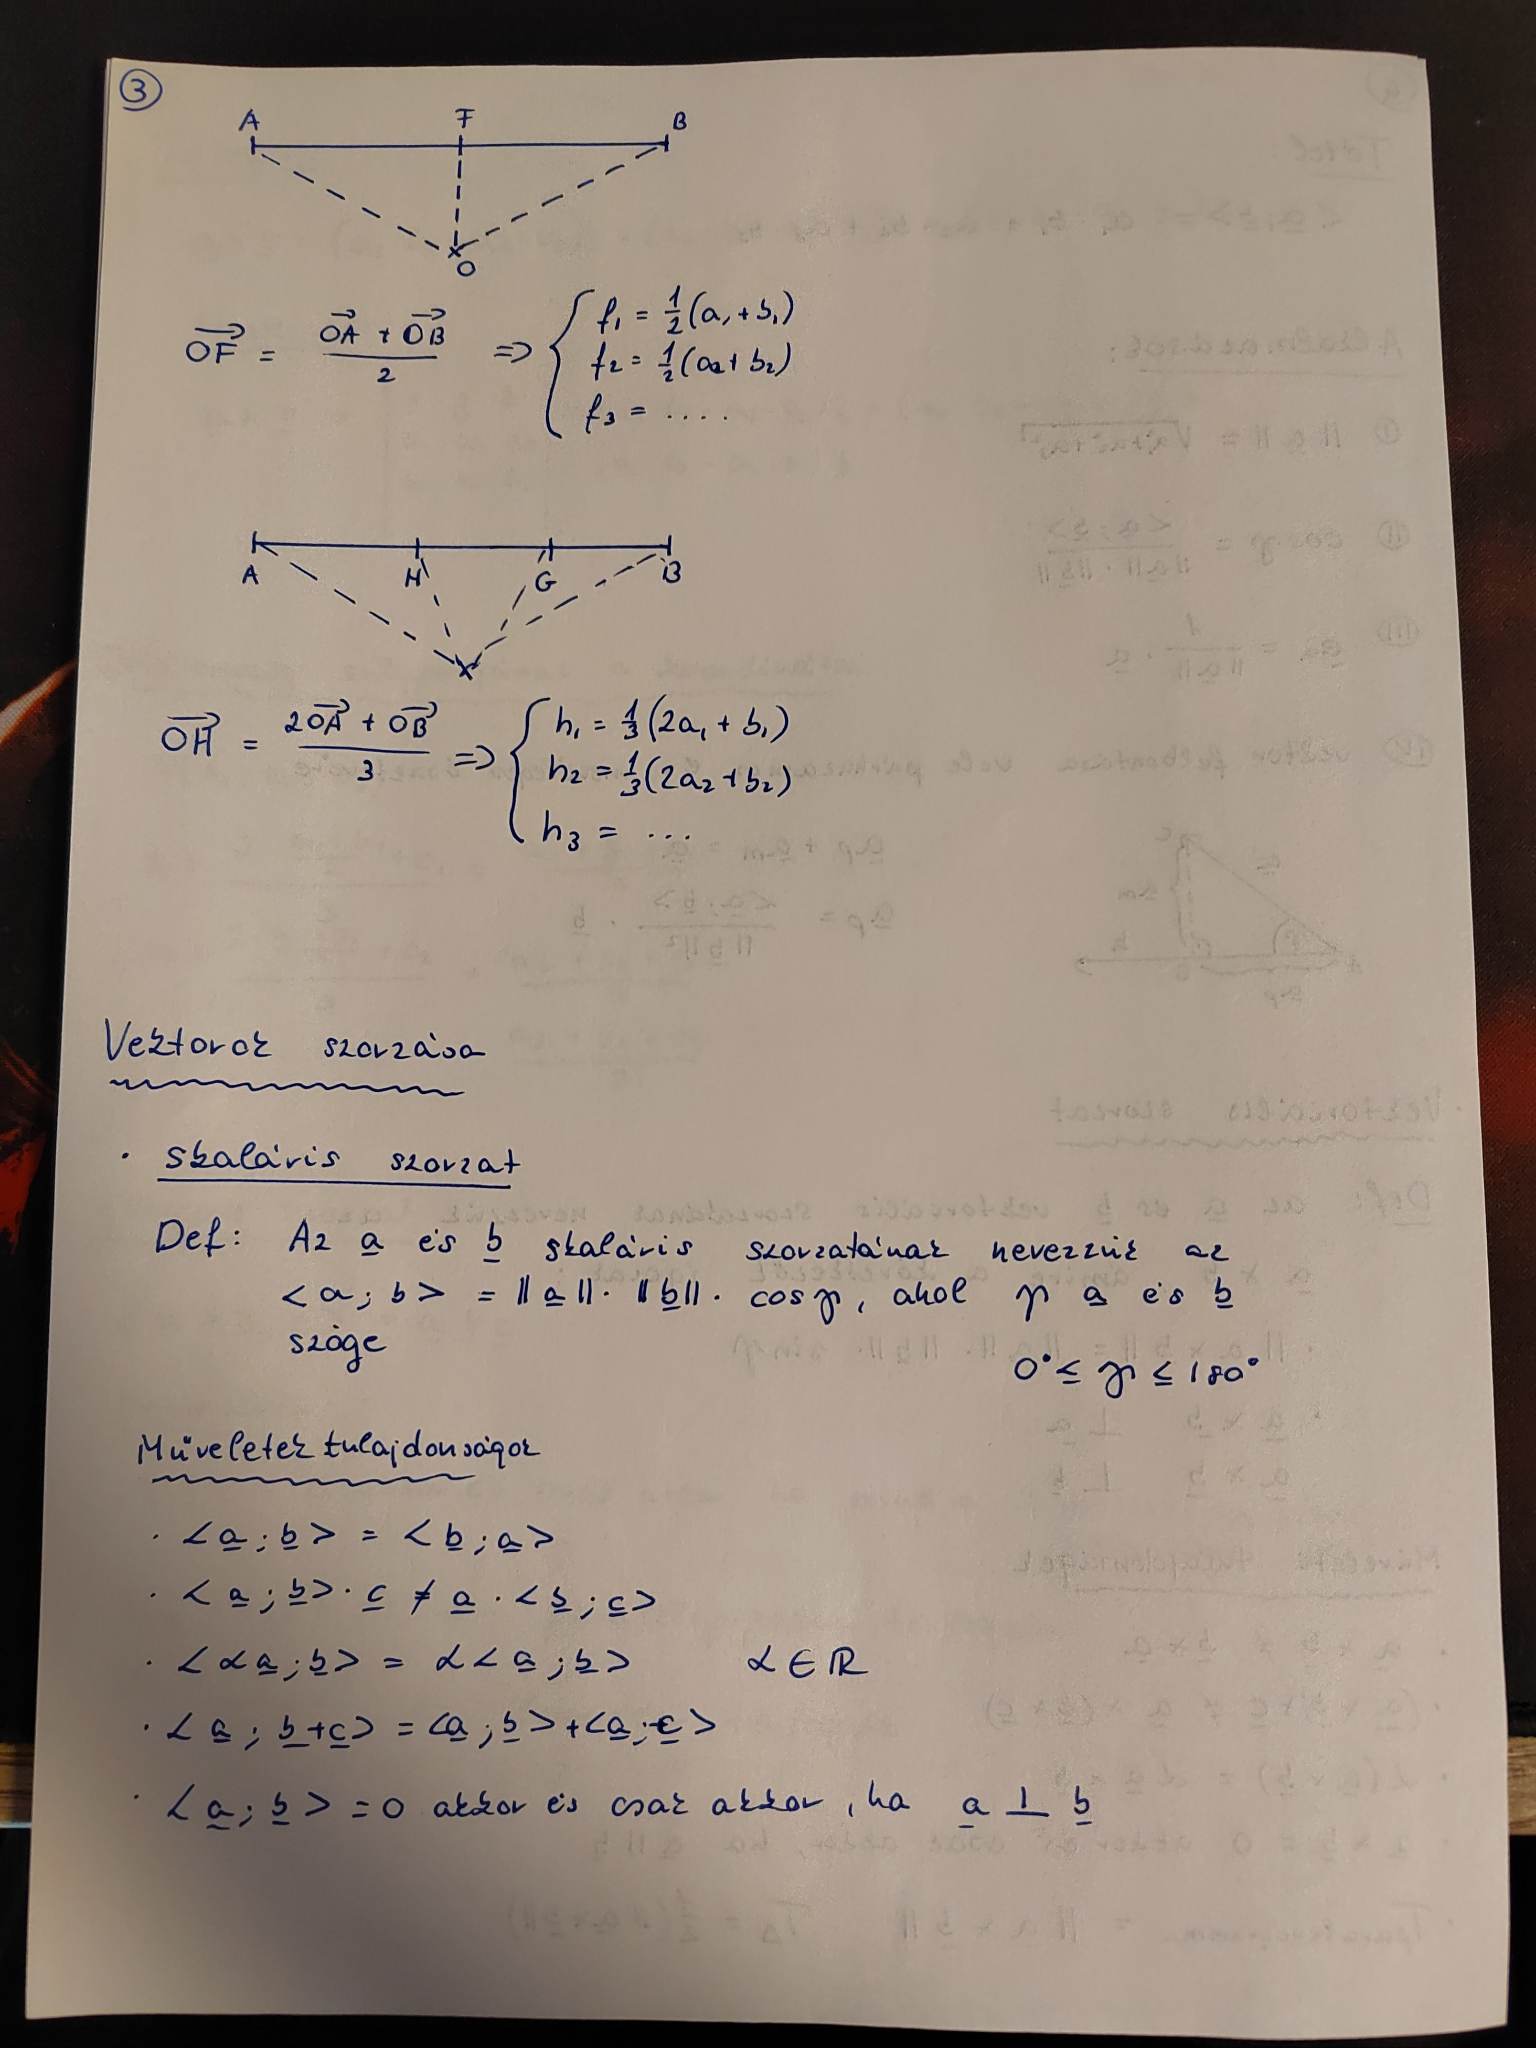 ③
A F B
O
$\overrightarrow{OF} = \frac{\overrightarrow{OA} + \overrightarrow{OB}}{2} \Rightarrow \begin{cases} f_1 = \frac{1}{2}(a_1 + b_1) \\ f_2 = \frac{1}{2}(a_2 + b_2) \\ f_3 = .... \end{cases}$
A H G B
$\overrightarrow{OH} = \frac{2\overrightarrow{OA} + \overrightarrow{OB}}{3} \Rightarrow \begin{cases} h_1 = \frac{1}{3}(2a_1 + b_1) \\ h_2 = \frac{1}{3}(2a_2 + b_2) \\ h_3 = ... \end{cases}$
Vektorok szorzása
· skaláris szorzat
Def: Az a és b skaláris szorzatának nevezzük az
<a; b> = ||a||· ||b||· cosφ, ahol φ a és b
szöge
0° ≤ φ ≤ 180°
Műveletek tulajdonságok
· <a; b> = <b; a>
· <a; b> · c ≠ a · <b; c>
· <αa; b> = α<a; b> α ∈ ℝ
· <a; b+c> = <a; b> + <a; c>
· <a; b> = 0 akkor és csak akkor, ha a ⊥ b